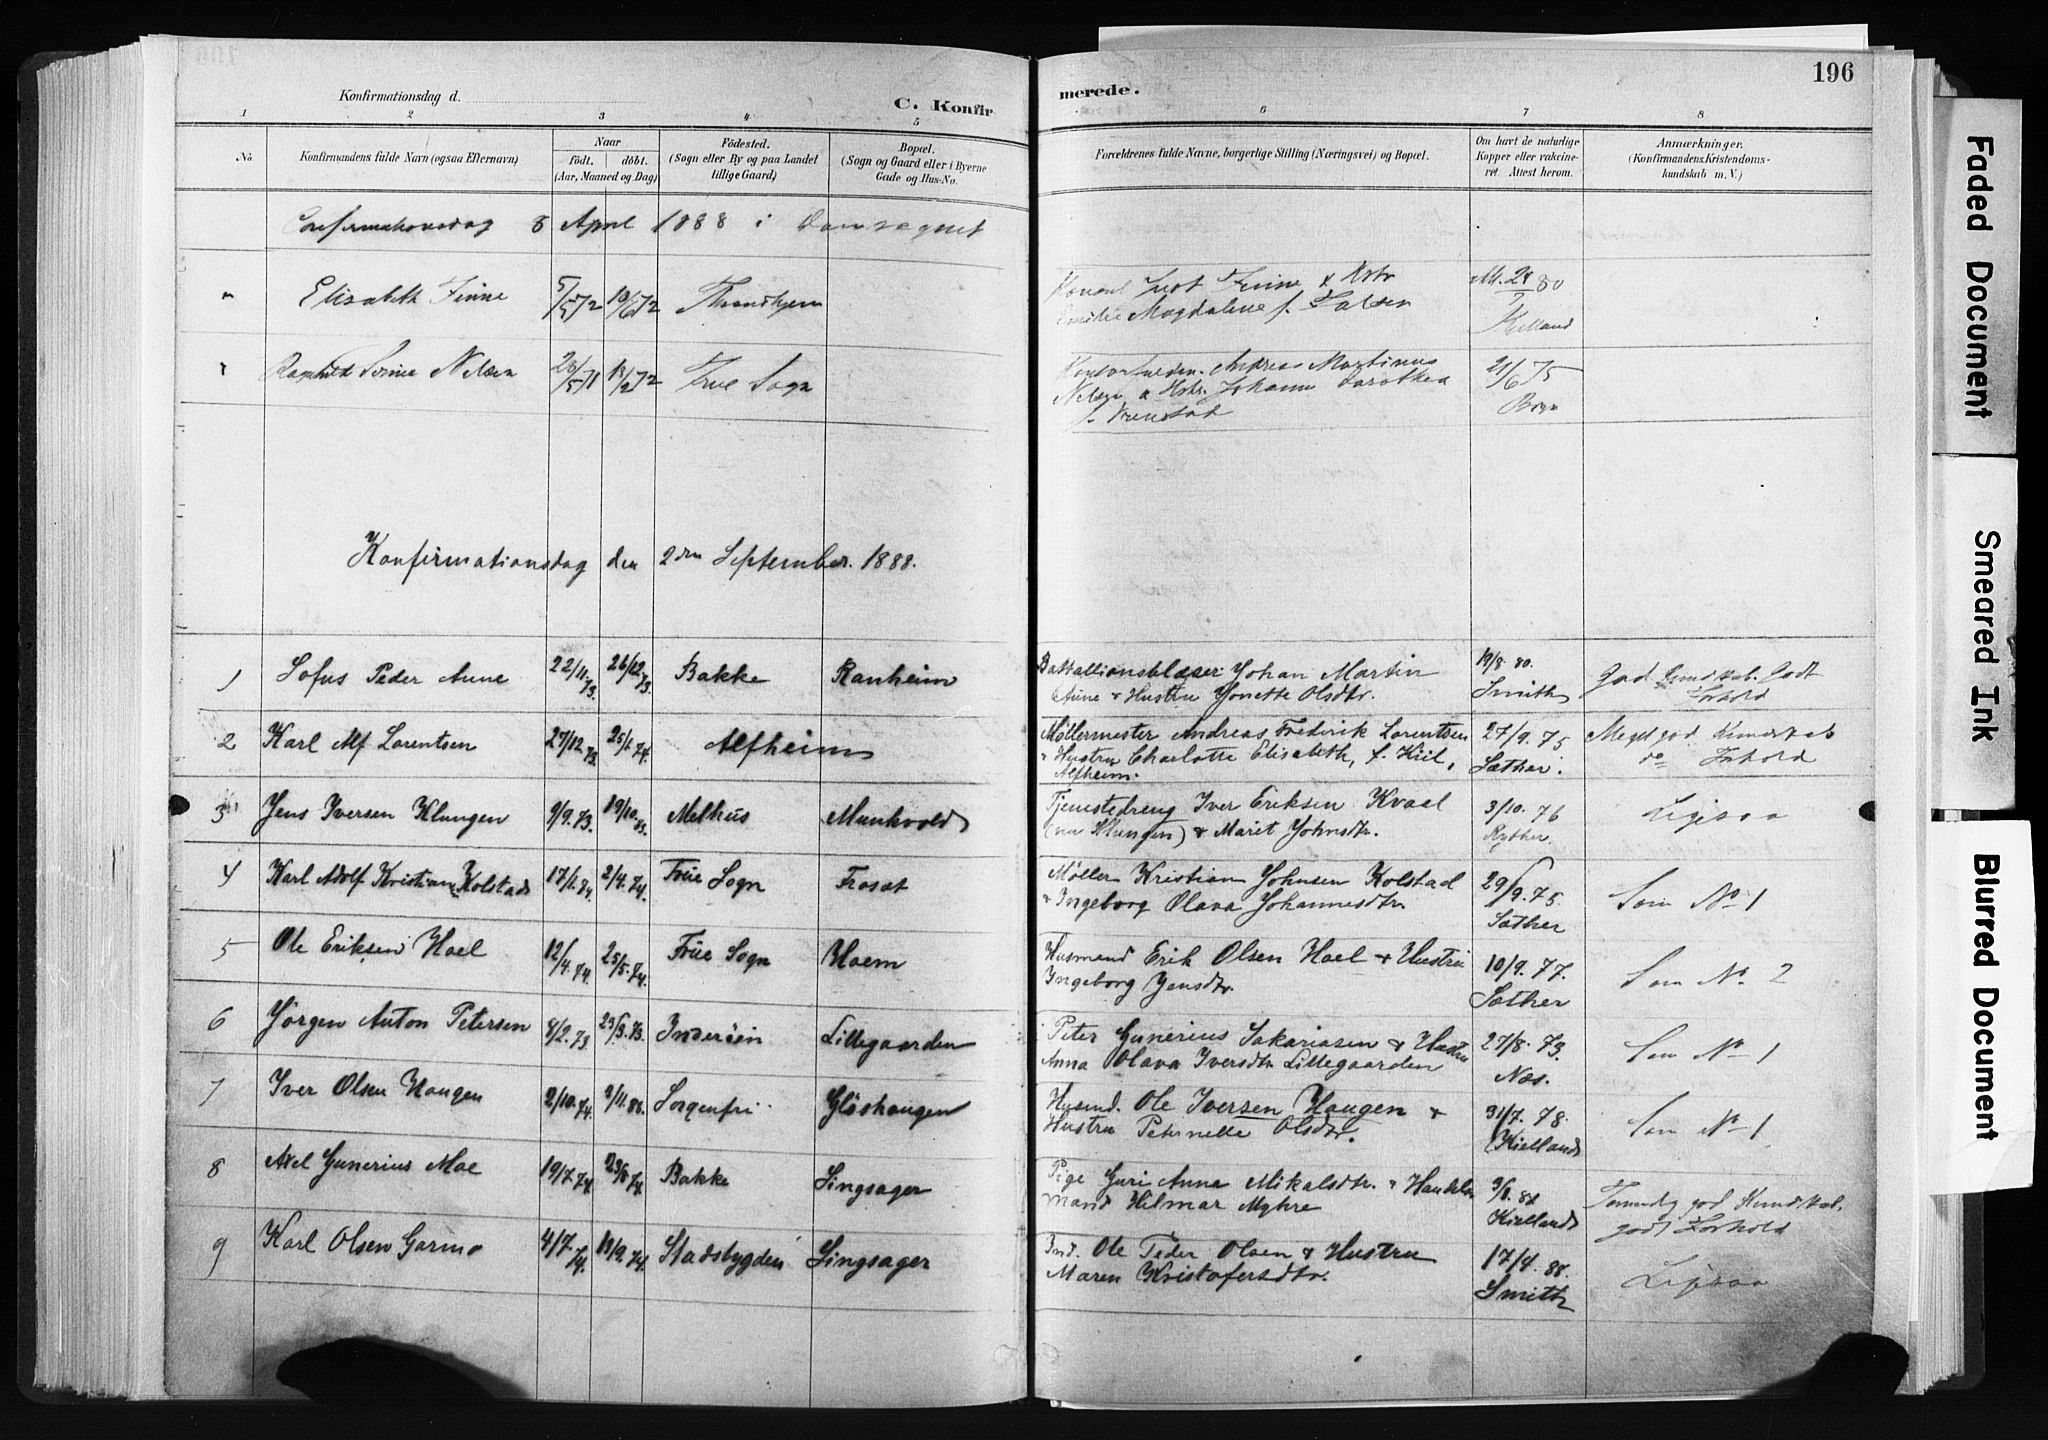 196
Konfirmationsdag d.
C. Konfir
merede.
1 2 3 4 5 6 7 8
No. Konfirmandens fulde Navn (ogsaa Efternavn) Naar født. døbt. (Aar, Maaned og Dag) Fødested. (Sogn eller By og paa Landet tillige Gaard) Bopæl. (Sogn og Gaard eller i Byerne Gade og Hus-No. Forældrenes fulde Navne, borgerlige Stilling (Næringsvei) og Bopæl. Om havt de naturlige Kopper eller vakcineret. Attest herom. Anmærkninger. (Konfirmandens Kristendomskundskab m. V.)
Confirmationsdag 8 April 1888 i
" Elisabeth Finne 5/5 72 18/6 72 Throndhjem Konsul Just Finne & Hstr Emilie Magdalene f. Kielland
" Ragnhild Nelsen 71 72 Frue Sogn Andreas Martinus
Nelsen & Hstr. Johanne Dorothea
21/6 75
Konfirmationsdag den 2den September 1888.
1 Sofus Peder Aune 22/11.73. 26/12.73. Bakke Ranheim Battallionsblæser Johan Martin
Aune & Hustru Jonette Olsdtr. 19/8 80. Smith God Kundskab. Godt
Forhold
2 Karl Alf Lorentsen 27/12.73. 25/1.74. Alfheim Møllermester Andreas Frederik Lorentsen
& Hustru Charlotte Elisabeth, f. Kiil,
Alfheim. 27/9. 75 Sæther. Meget god Kundskab
do Forhold
3 Jens Iversen Klungen 9/9.73. 19/10.73. Melhus Munkvold Tjenestedreng Iver Eriksen Kvaal
(nu Klungen) & Marit Johnsdtr. 3/10. 76 Ligesaa
4 Karl Adolf Kristian Kolstad 17/1.74. 2/4.74. Frue Sogn Frosæt Møller Kristian Johnsen Kolstad
& Ingeborg Olava Johannesdtr. 29/9.75. Sæther Som No 1
5 Ole Eriksen Hoel 12/4.74. 25/5.74. Frue Sogn Hoem Husmand Erik Olsen Hoel & Hustru
Ingeborg Jensdtr. 10/9. 77. Sæther Som No. 2
6 Jörgen Anton Petersen 8/2.73. 23/3.73. Inderöen Lillegaarden Peter Gunerius Sakariasen & Hustru
Anna Olava Iversdtr. Lillegaarden 27/8. 73. Næs. Som No 1
7 Iver Olsen Haugen 2/10.74. Sorgenfri Glöshaugen Husmd. Ole Iversen Haugen &
Hustru Peternelle Olsdtr. 31/7. 78. Kielland Som No 1
8 Axel Gunerius Moe 19/7.74. 23/8 74. Bakke Singsager Pige Guri Anna Mikalsdtr. & Handels
mand Hilmar Myhre Kielland god Kundskab.
godt Forhold
9 Karl Olsen Garmo 4/7.74. 13/9.74. Stadsbygden Singsager Ind. Ole Peder Olsen & Hustru
Maren Kristofersdtr. 17/4. 88. Smith Ligesaa
Faded Document
Smeared Ink
Blurred Document